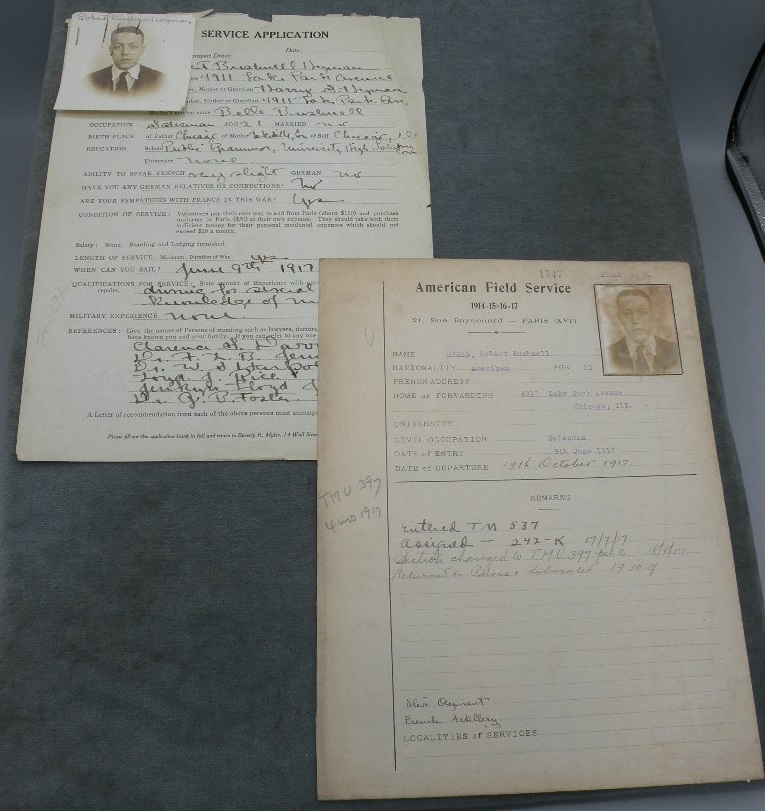 Robert Bushnell Hyman
SERVICE APPLICATION
Date
Transport Driver
Bushnell Hyman
4911 Lake Park Avenue
Father, Mother or Guardian Harry Hyman
Father, Mother or Guardian 4911 Lake Park Av.
Mother's maiden name Belle Bushnell
OCCUPATION Salesman AGE 21 MARRIED no
BIRTH PLACE of Father Chicago of Mother of Self Chicago, Ill.
EDUCATION School Public Grammar, University High,
University None
ABILITY TO SPEAK FRENCH very slight GERMAN no
HAVE YOU ANY GERMAN RELATIVES OR CONNECTIONS? No
ARE YOUR SYMPATHIES WITH FRANCE IN THIS WAR? Yes
CONDITION OF SERVICE: Volunteers pay their own way to and from Paris (about $150) and purchase
uniforms in Paris ($50) at their own expense. They should take with them
sufficient money for their personal incidental expenses which should not
exceed $20 a month.
Salary: None. Boarding and Lodging furnished.
LENGTH OF SERVICE Minimum, Duration of War. yes
WHEN CAN YOU SAIL? June 9th 1917
QUALIFICATIONS FOR SERVICE: State amount of Experience with
repairs. driving for several
knowledge of m
MILITARY EXPERIENCE none
REFERENCES: Give the names of Persons of standing such as lawyers, doctors,
have known you and your family. If you can refer to any one
Clarence S. Darr
Dr.
Dr. W. S.
Lloyd J.
Jenkyn Lloyd J
Dr. G. B. Foster
A Letter of recommendation from each of the above persons must accomp
Please fill out this application blank in full and return to 14 Wall Street
1547 HYMAN R. B.
American Field Service
1914-15-16-17
21, Rue Raynouard — PARIS (XVI)
NAME HYMAN, Robert Bushnell
NATIONALITY American AGE 21
FRENCH ADDRESS
HOME or FORWARDING 4911 Lake Park Avenue
Chicago, Ill.
UNIVERSITY
CIVIL OCCUPATION Salesman
DATE of ENTRY 9th June 1917
DATE of DEPARTURE 19th October 1917
TMU 397
4 mos 1917
REMARKS
Entered TM 537
Assigned — 242-K 17/7/17
Section changed to T.M.U 397 18/8/17
Returned to Paris & liberated 19.10.17
Élève Aspirant
French Artillery
LOCALITIES of SERVICES